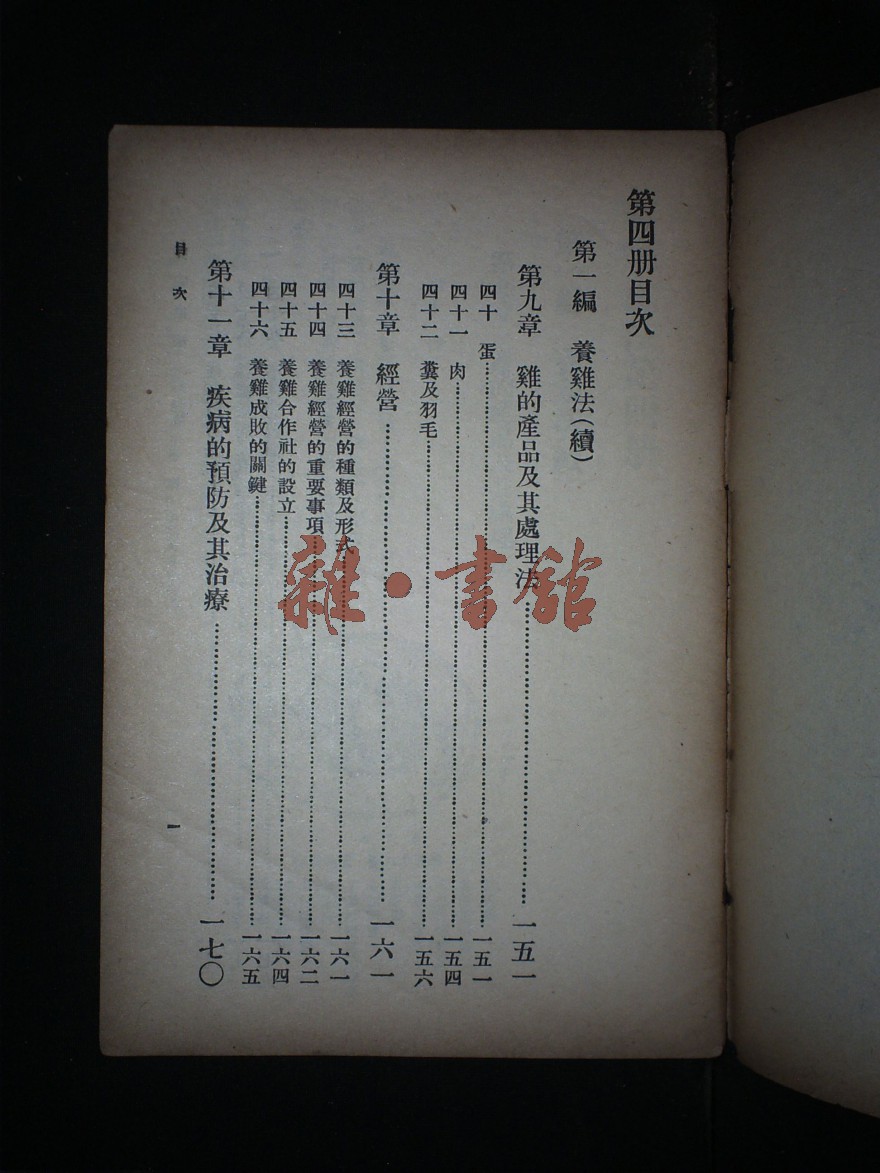 第四册目次
第一編　養雞法(續)
第九章　雞的產品及其處理法……一五一
四十　蛋……一五一
四十一　肉……一五四
四十二　糞及羽毛……一五六
第十章　經營……一六一
四十三　養雞經營的種類及形式……一六一
四十四　養雞經營的重要事項……一六二
四十五　養雞合作社的設立……一六四
四十六　養雞成敗的關鍵……一六五
第十一章　疾病的預防及其治療……一七〇
目次
一
雜·書館